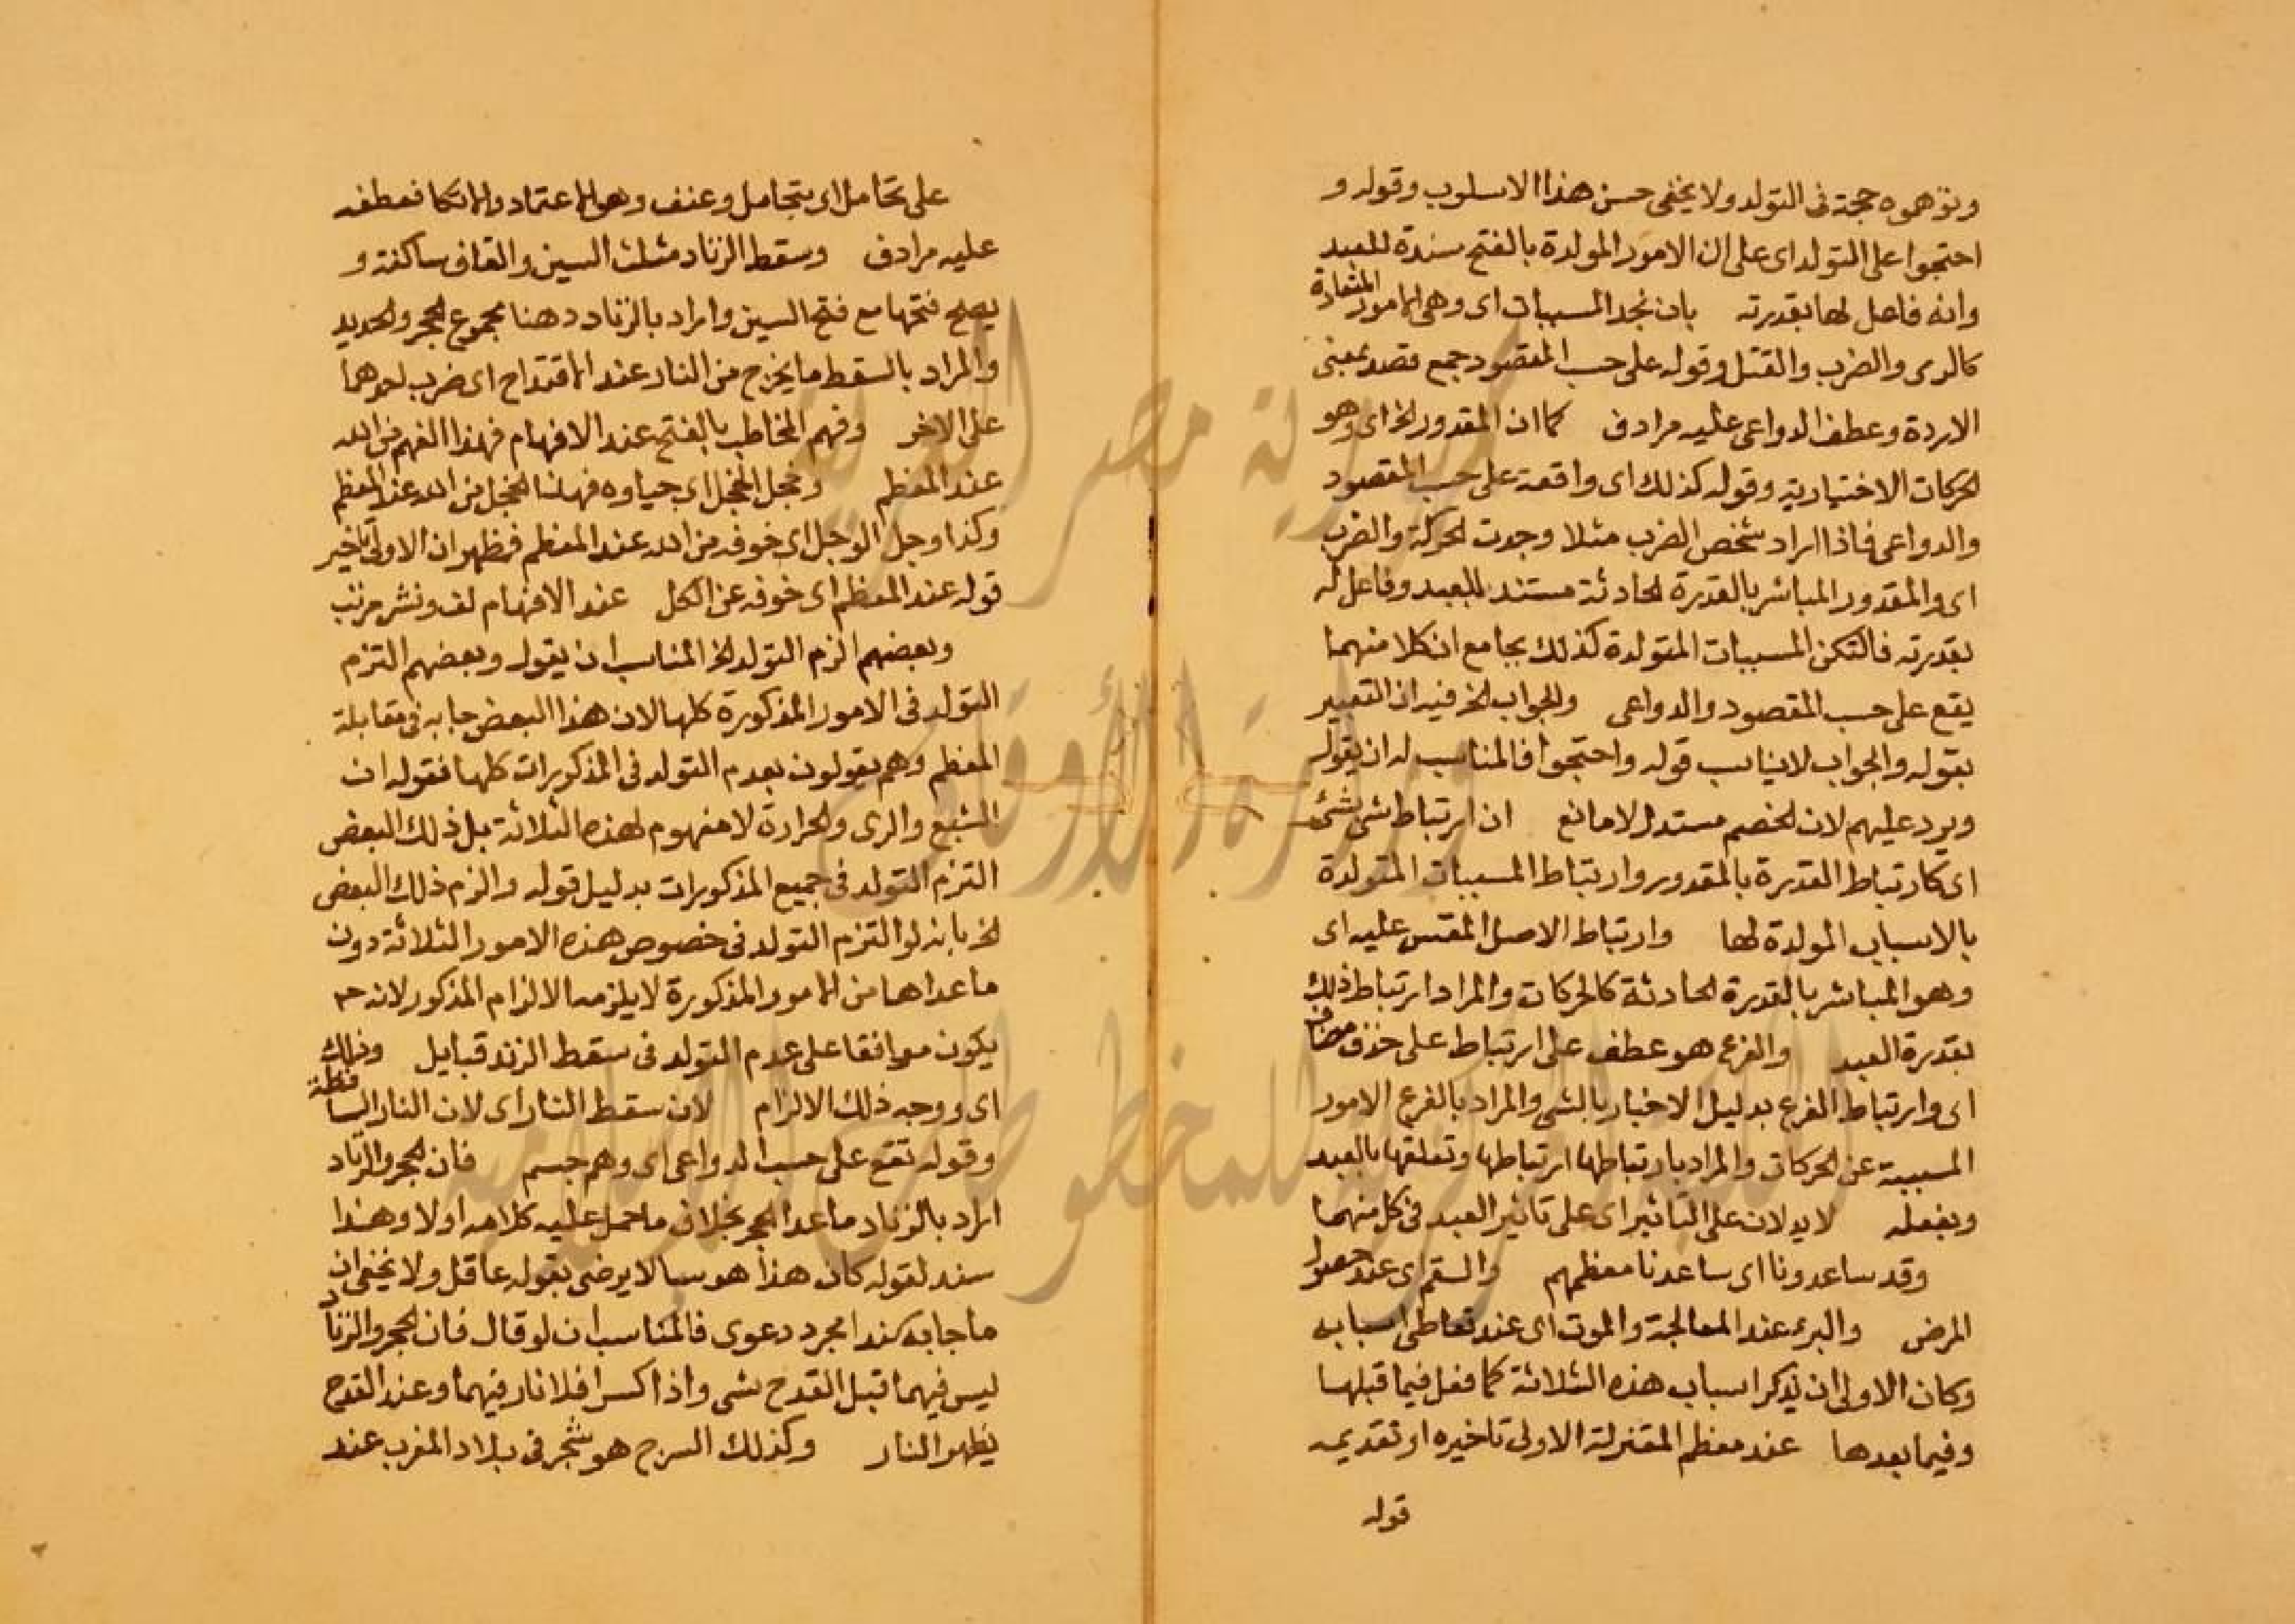 وتوهموه حجة فى التولد ولا يخفى حسن هذا الاسلوب وقوله و
احتجوا على التولد اى على ان الامور المولدة بالفتح سندة للعبد
وانه فاعل لها بقدرته بان نجد المسببات اى وهى الامور المتعادة
كالرى والضرب والقتل وقوله على حسب المقصود جمع قصد بمعنى
الاردة وعطف الدواعى عليه مرادف كما ان المقدور الخ اى وهو
الحركات الاختيارية وقوله كذلك اى واقعة على حسب المقصود
والدواعى فاذا اراد شخص الضرب مثلا وجدت الحركة والضرب
اى والمقدور المباشر بالقدرة الحادثة مستند للعبد وفاعل له
بقدرته فالتكن المسببات المتولدة كذلك بجامع ان كلا منهما
يقع على حسب المقصود والدواعى والجواب الخ فيه ان التعبير
بقوله والجواب لا يناسب قوله واحتجوا فالمناسب له ان يقول
ويرد عليهم لان الخصم مستدل لا مانع ان ارتباط شئ بشئ
اى كارتباط القدرة بالمقدور وارتباط المسببات المتولدة
بالاسباب المولدة لها وارتباط الاصل المقتس عليه اى
وهو المباشر بالقدرة الحادثة كالحركات والمراد ارتباط ذلك
بقدرة العبد والفرع هو عطف على ارتباط على حذف مضاف
اى وارتباط الفرع بدليل الاخبار بالشى والمراد بالفرع الامور
المسببة عن الحركات والمراد بارتباطها ارتباطها وتعلقها بالعبد
وبفعله لا يدلان على التاثير اى على تاثير العبد فى كل منهما
وقد ساعدونا اى ساعدنا معظمهم والسقم اى عند حصول
المرض والبرء عند المعالجة والموت اى عند تعاطى اسبابه
وكان الاولى ان يذكر اسباب هذه الثلاثة كما فعل فيما قبلها
وفيما بعدها عند معظم المقتزلة الاولى تاخيره او تقديمه
قوله
على تحامل اى بتحامل وعنف وهو الاعتماد والاتكا فعطفه
عليه مرادف وسقط الزناد مثلث السين والقاف ساكنة و
يصح فتحها مع فتح السين واراد بالزناد دهنا مجموع الحجر والحديد
والمراد بالسقط ما يخرج من النار عند الاقتداح اى ضرب احدهما
على الاخر وفهم المخاطب بالفتح عند الافهام فهذا الفهم من الله
عند المعظم وخجل الخجل اى حياوه فهذا الخجل من الله عند المعظم
وكذا وجل الوجل اى خوفه من الله عند المعظم فظهر ان الاولى تاخير
قوله عند المعظم اى خوفه عن الكل عند الافهام لف ونشر مرتب
وبعضهم الزم التولد الخ المناسب ان يقول وبعضهم التزم
التولد فى الامور المذكورة كلها لان هذا البعض جا به فى مقابلة
المعظم وهم يقولون بعدم التولد فى المذكورات كلها فقوله ان
الشبع والرى والحرارة لا مفهوم لهذه الثلاثة بل ذلك البعض
التزم التولد فى جميع المذكورات بدليل قوله والزم ذلك البعض
الخ بانه لو التزم التولد فى خصوص هذه الامور الثلاثة دون
ما عداها من الامور المذكورة لا يلزمه الالزام المذكور لانه ح
يكون موافقا على عدم التولد فى سقط الزند قبايل وذلك
اى ووجه ذلك الالزام لان سقط النار اى لان النار الساقطة
وقوله تقع على حسب الدواعى اى وهم جسم فان الحجر والزناد
اراد بالزناد ما عدا الحجر بخلاف ما حمل عليه كلامه اولا وهذا
سند لقوله كان هذا هوسا لا يرضى بقوله عاقل ولا يخفى ان
ما جا به كندا مجرد دعوى فالمناسب ان لو قال فان الحجر والزناد
ليس فيهما قبل القدح بشى واذا كسرا فلا نار فيهما وعند القدح
يظهر النار وكذلك السرح هو شجر فى بلاد المغرب عند
جمهورية مصر العربية
وزارة الأوقاف
المكتبة المركزية للمخطوطات الإسلامية